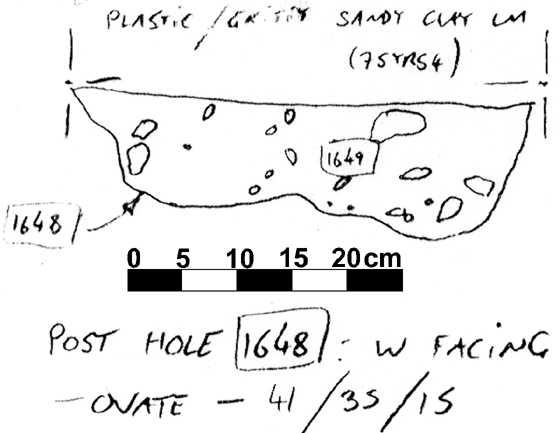 PLASTIC / GRITTY SANDY CLAY LM
(75YR54)
1649
1648
0 5 10 15 20 cm
POST HOLE 1648 : W FACING
- OVATE - 41 / 35 / 15